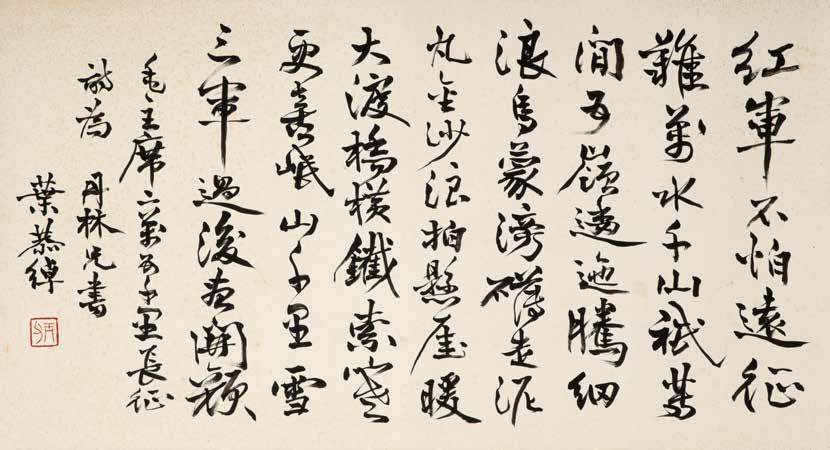 紅軍不怕遠征
難萬水千山祇等
閒五嶺逶迤騰細
浪烏蒙滂礴走泥
丸金沙浪拍懸崖暖
大渡橋橫鐵索寒
更喜岷山千里雪
三軍過後盡開顏
毛主席二萬五千里長征
詩為 丹林兄書
葉恭綽